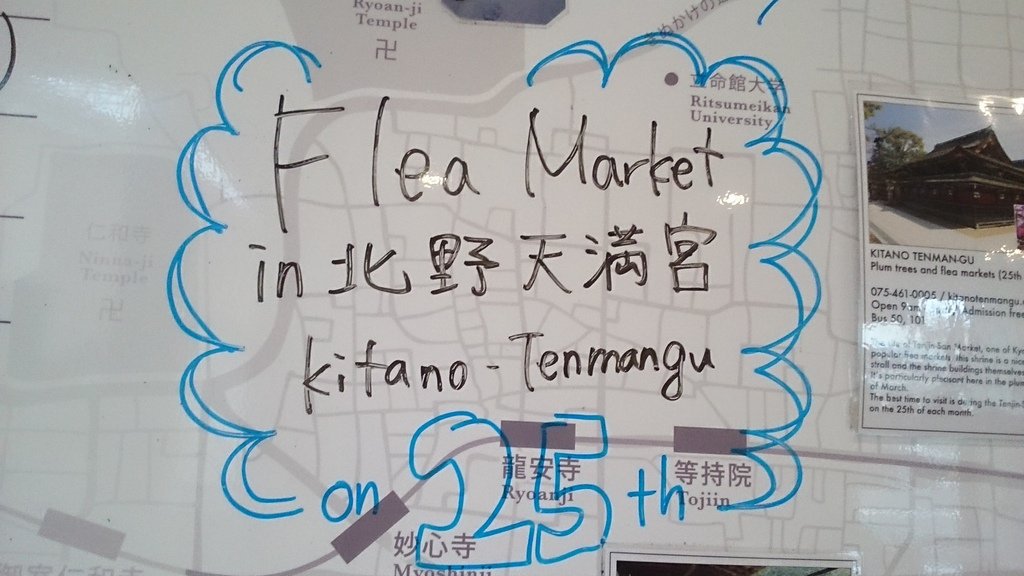 Ryoan-ji
Temple
卍
立命館大学
Ritsumeikan
University
Flea Market
in 北野天満宮
kitano-Tenmangu
on 25th
仁和寺
Ninna-ji
Temple
卍
龍安寺
Ryoanji
等持院
Tojiin
妙心寺
Myoshinji
御室仁和寺
KITANO TENMAN-GU
Plum trees and flea markets (25th
075-461-0005 / kitanotenmangu.
Open 9am Admission free
Bus 50, 101
popular flea markets, this shrine is a nice
stroll and the shrine buildings themselves
It's particularly pleasant here in the plum
of March.
The best time to visit is during the Tenjin-S
on the 25th of each month.